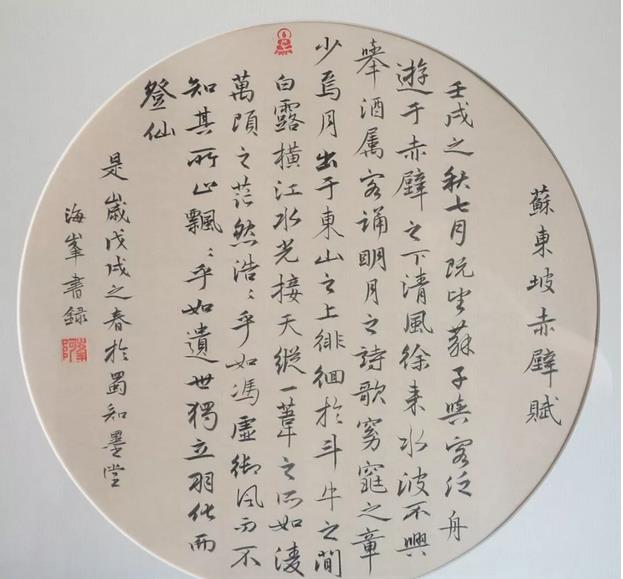 蘇東坡赤壁賦
壬戌之秋七月既望蘇子與客泛舟
遊于赤壁之下清風徐来水波不興
舉酒属客誦明月之詩歌窈窕之章
少焉月出于東山之上徘徊於斗牛之間
白露橫江水光接天縱一葦之所如凌
萬頃之茫然浩〻乎如馮虛御風而不
知其所止飄〻乎如遺世獨立羽化而
登仙
是歲戊戌之春於蜀知墨堂
海峯書録